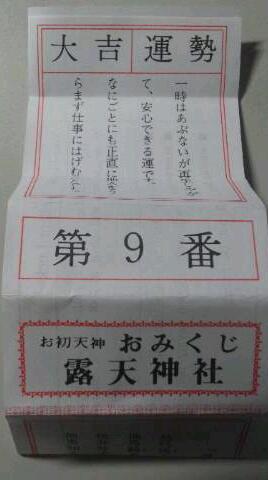 大吉運勢
一時はあぶないが再
て、安心できる運で
なにごとにも正直に
らまず仕事にはげむ
第9番
お初天神 おみくじ
露天神社